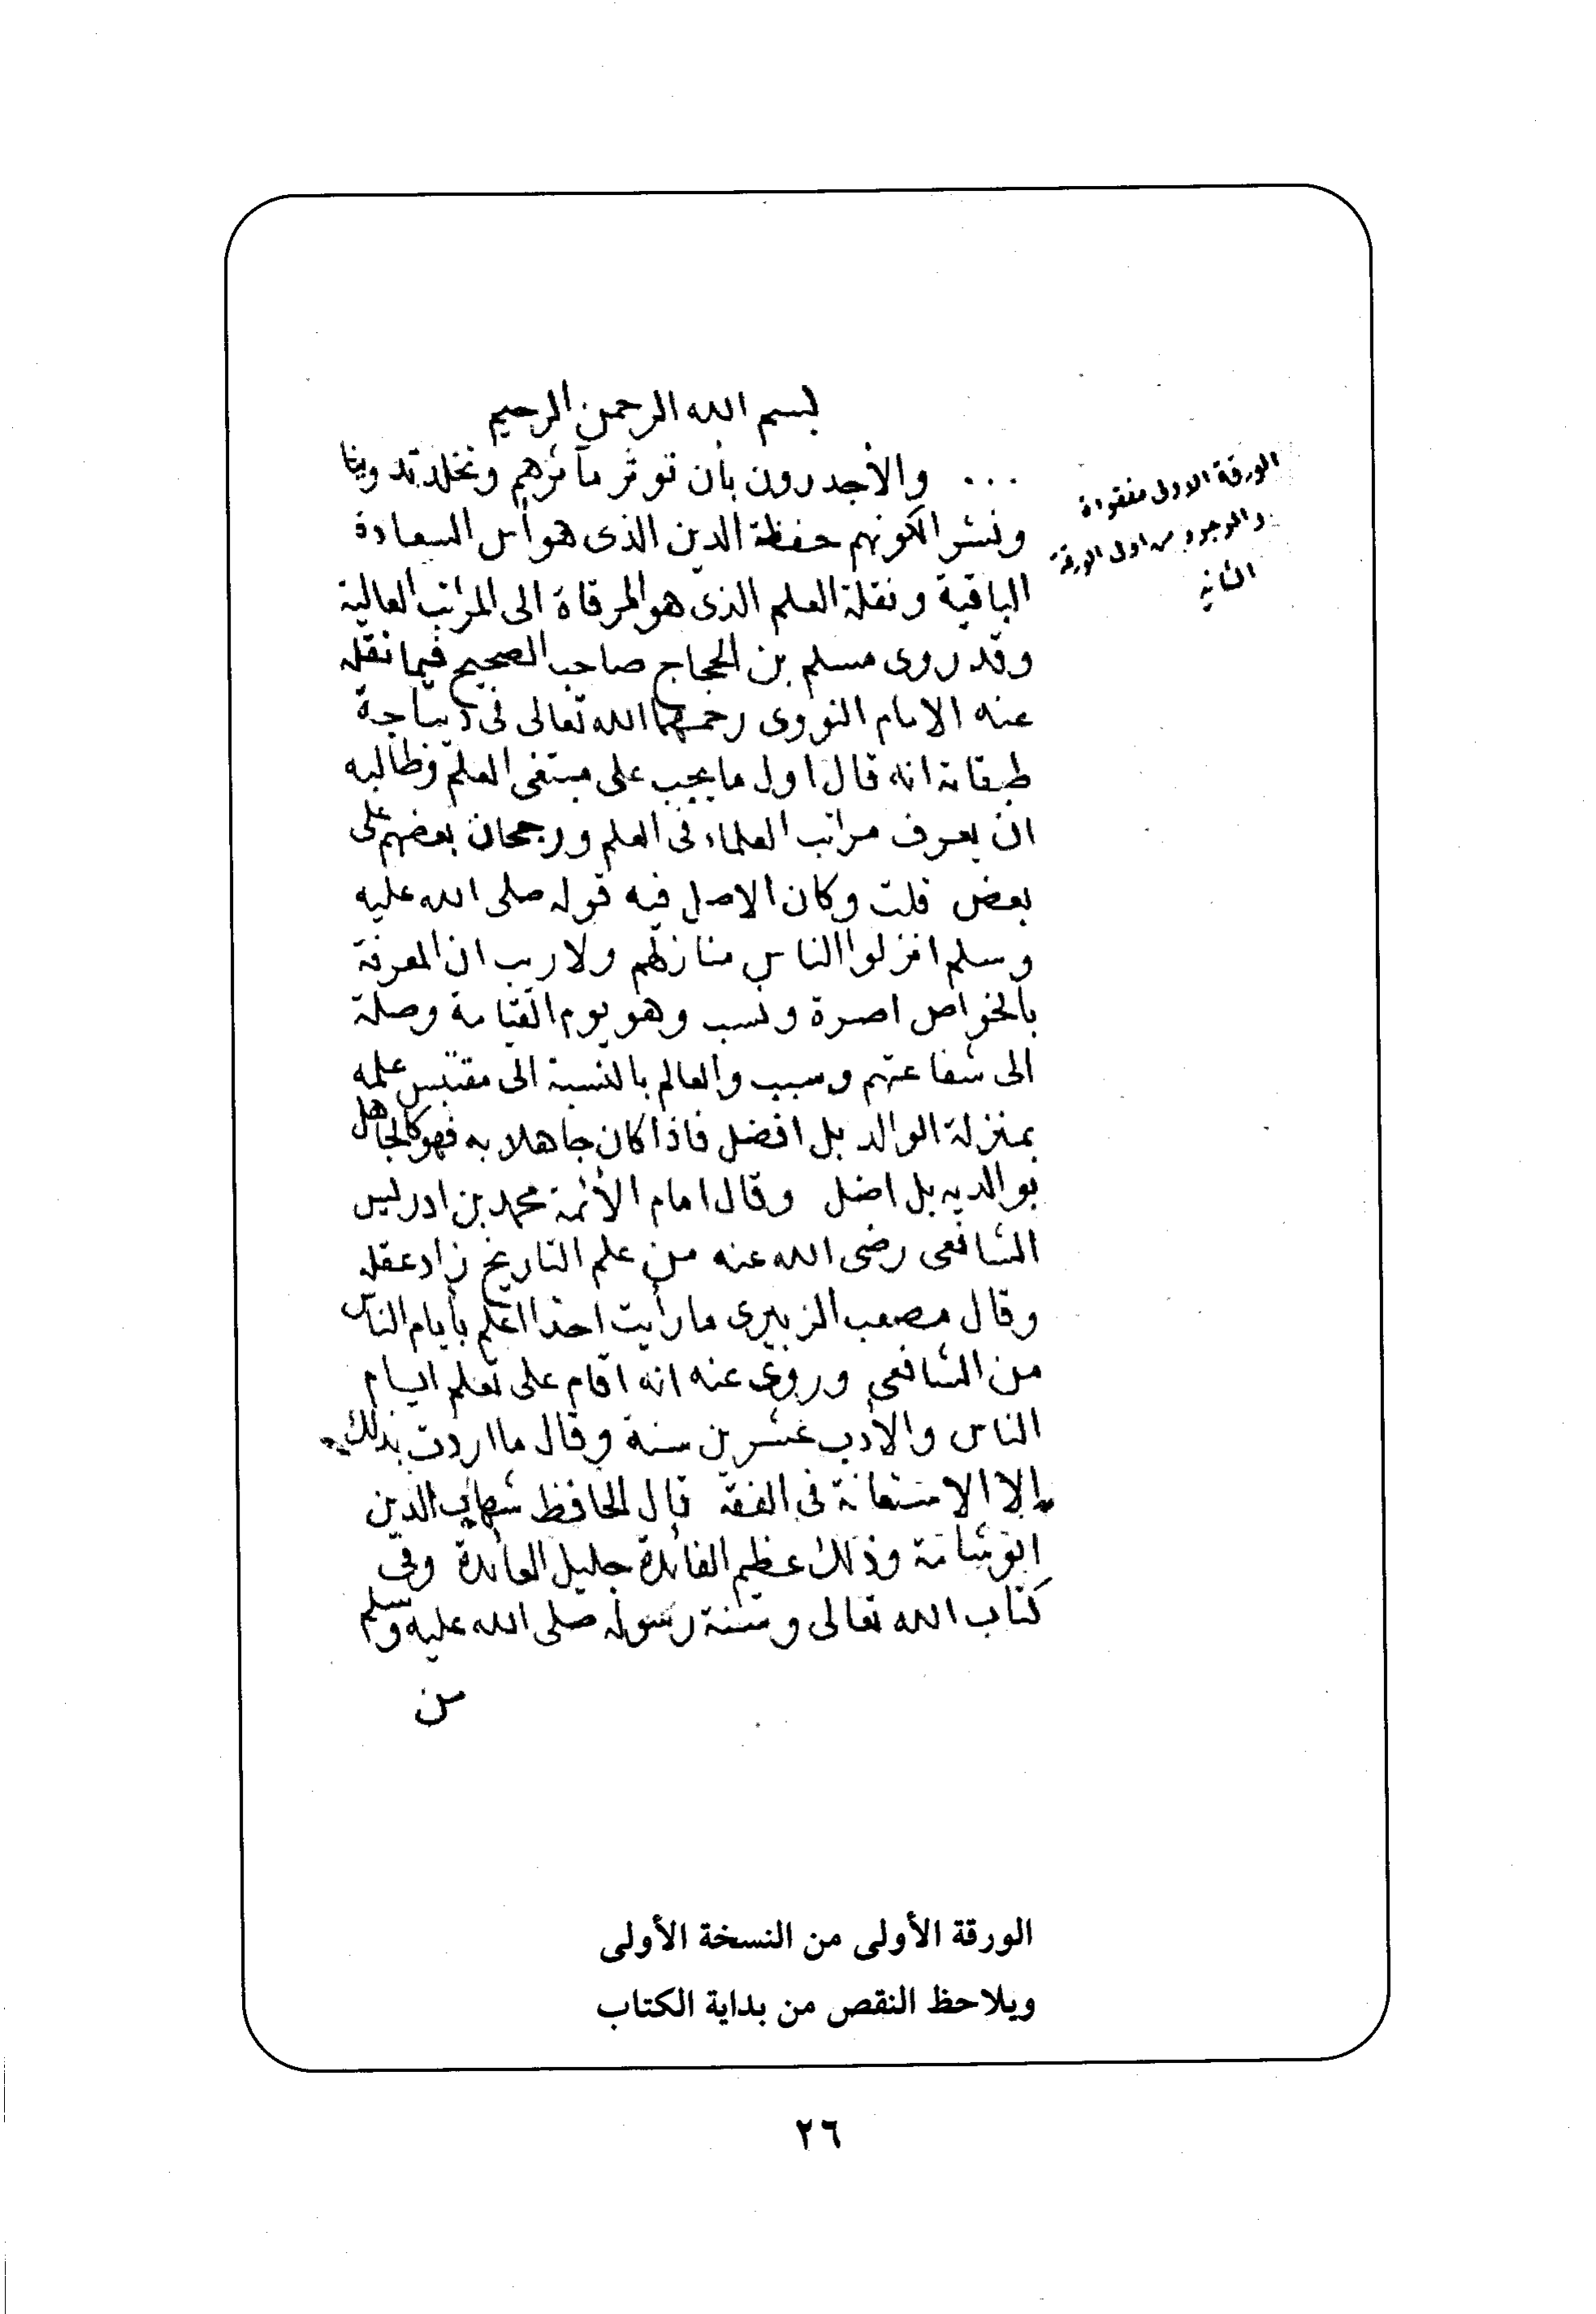 بسم الله الرحمن الرحيم
... والأجدرون بأن تؤثر مآثرهم وتخلد تدوينا
ونشرا لكونهم حفظة الدين الذى هو أس السعادة
الباقية ونقلة العلم الذى هو المرقاة الى المراتب العالية
وقد روى مسلم بن الحجاج صاحب الصحيح فيما نقله
عنه الامام النووى رحمهما الله تعالى فى ديباجة
طبقاته انه قال اول ما يجب على مبتغى العلم وطالبه
ان يعرف مراتب العلماء فى العلم ورجحان بعضهم على
بعض قلت وكان الاصل فيه قوله صلى الله عليه
وسلم انزلوا الناس منازلهم ولا ريب ان المعرفة
بالخواص اصرة ونسب وهو يوم القيامة وصلة
الى شفاعتهم وسبب والعالم بالنسبة الى مقتبس علمه
بمنزلة الوالد بل افضل فاذا كان جاهلا به فهو كالجاهل
بوالديه بل اضل وقال امام الأئمة محمد بن ادريس
الشافعى رضى الله عنه من علم التاريخ زاد عقله
وقال مصعب الزبيرى ما رأيت احدا اعلم بأيام الناس
من الشافعى وروى عنه انه اقام على تعلم ايام
الناس والأدب عشرين سنة وقال ما اردت بذلك
إلا الاستعانة فى الفقه قال الحافظ شهاب الدين
ابو شامة وذلك عظيم الفائدة جليل العائدة وفى
كتاب الله تعالى وسنة رسوله صلى الله عليه وسلم
من
الورقة الاولى مفقودة
والموجود من اول الورقة
الثانية
الورقة الأولى من النسخة الأولى
ويلاحظ النقص من بداية الكتاب
٢٦